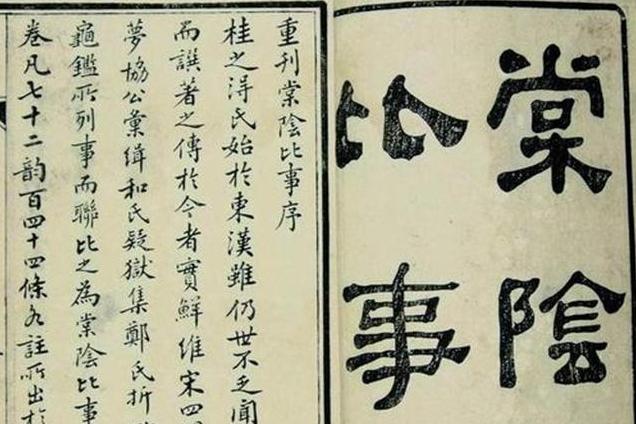 棠陰
比事
重刊棠陰比事序
桂之淂氏始於東漢雖仍世不乏聞
而譔著之傳於今者實鮮維宋四
夢協公彙緝和氏疑獄集鄭氏折
龜鑑所列事而聯比之為棠陰比事
卷凡七十二韵百四十四條各註所出於